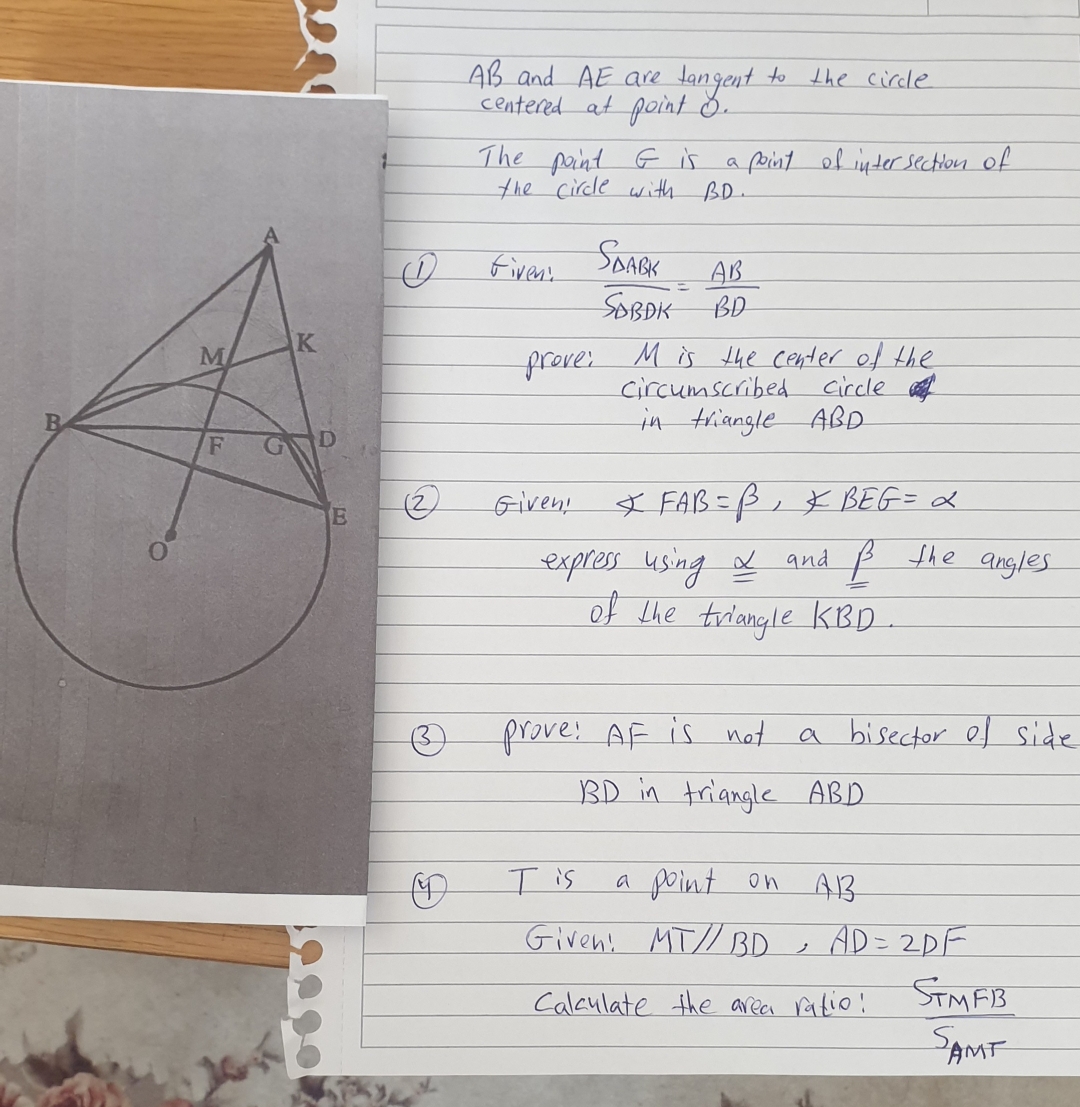 A
K
M
B
F
G
D
E
O
AB and AE are tangent to the circle
centered at point O.
The point G is a point of intersection of
the circle with BD.
① Given: SΔABK / SΔBDK = AB / BD
prove: M is the center of the
circumscribed circle
in triangle ABD
② Given: ∢ FAB = β, ∢ BEG = α
express using α and β the angles
of the triangle KBD.
③ prove: AF is not a bisector of side
BD in triangle ABD
④ T is a point on AB
Given: MT // BD, AD = 2DF
Calculate the area ratio: STMFB / SAMT